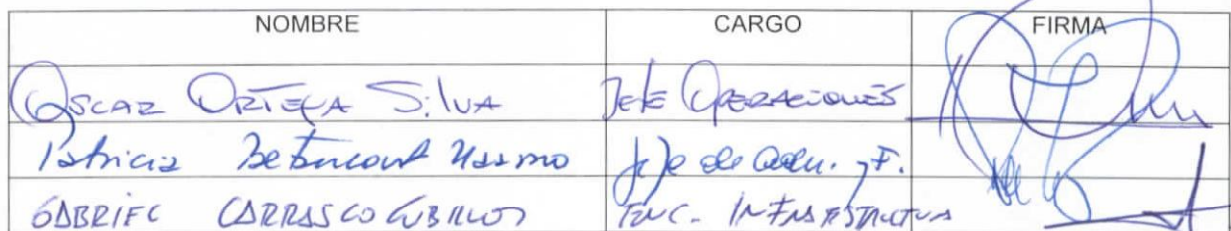 NOMBRE CARGO FIRMA
Oscar Ortega Silva Jefe Operaciones
Patricia Betancourt Jefe de Adm. y F.
GABRIEL CARRASCO CUBILLOS ENC. INFRAESTRUCTURA